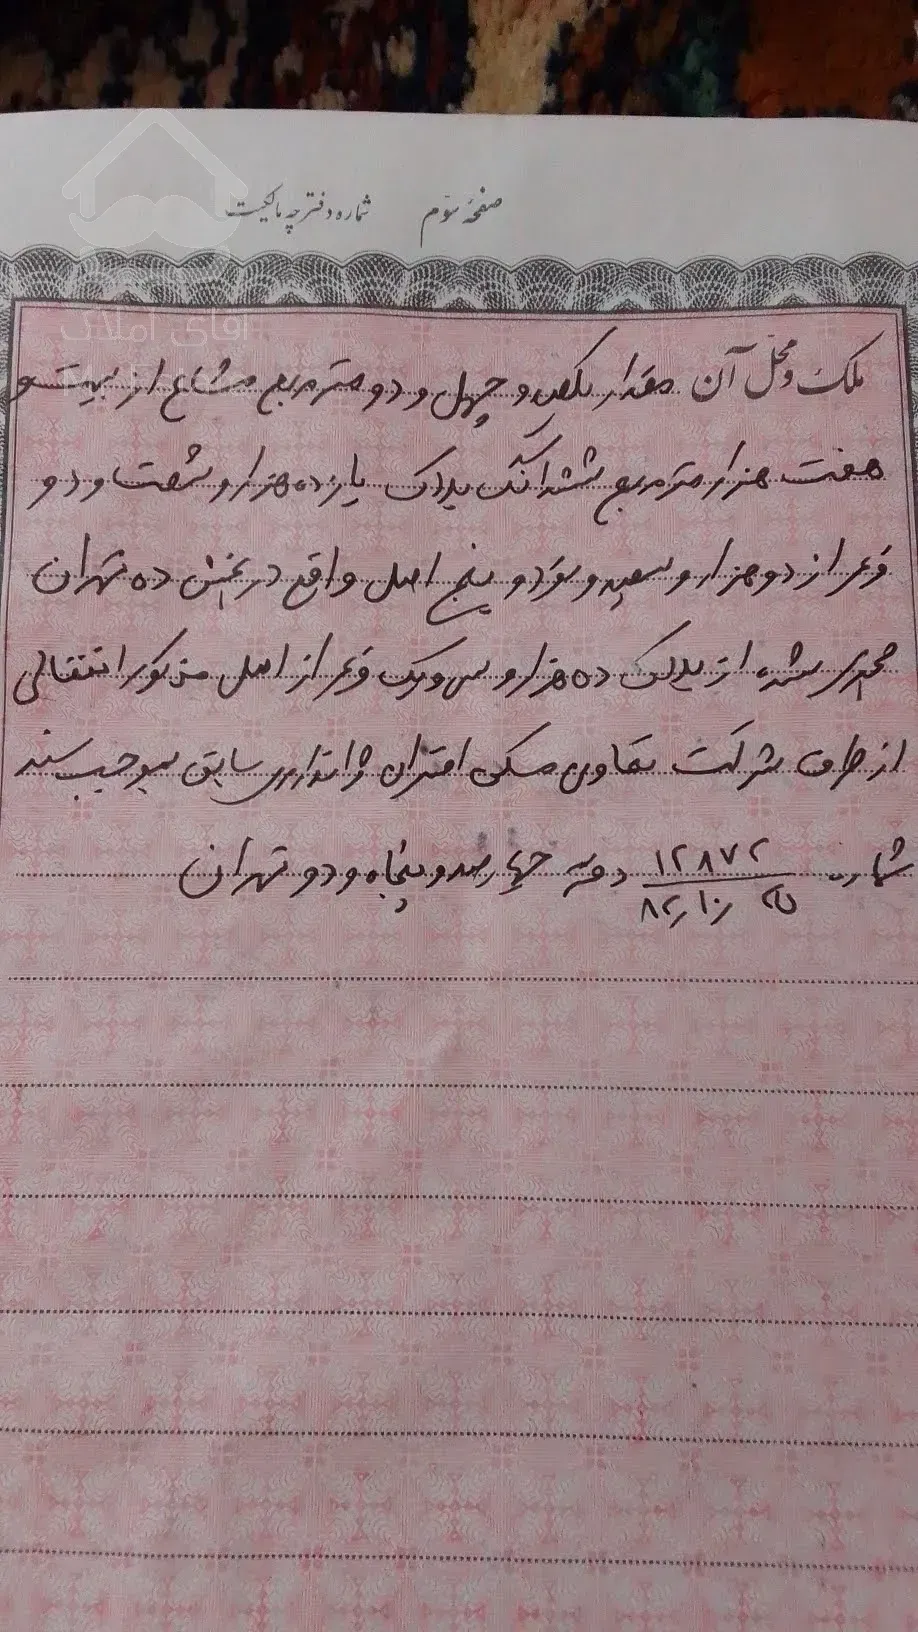 صفحهٔ سوّم شماره دفترچه مالکیت
آقای املاک
ملک و محل آن مقدار یکصد و چهل و دو متر مربع مشاع از بیست و
هفت هزار متر مربع ششدانگ پلاک یازده هزار و شصت و دو
فرعی از دو هزار و سیصد و نود و پنج اصلی واقع در بخش ده تهران
مجزی شده از پلاک ده هزار و سی و یک فرعی از اصلی مذکور انتقالی
از طرف شرکت تعاونی مسکن افسران ژاندارمری سابق بموجب سند
شماره ۱۲۸۷۲ دفتر چهارصد و پنجاه و دو تهران